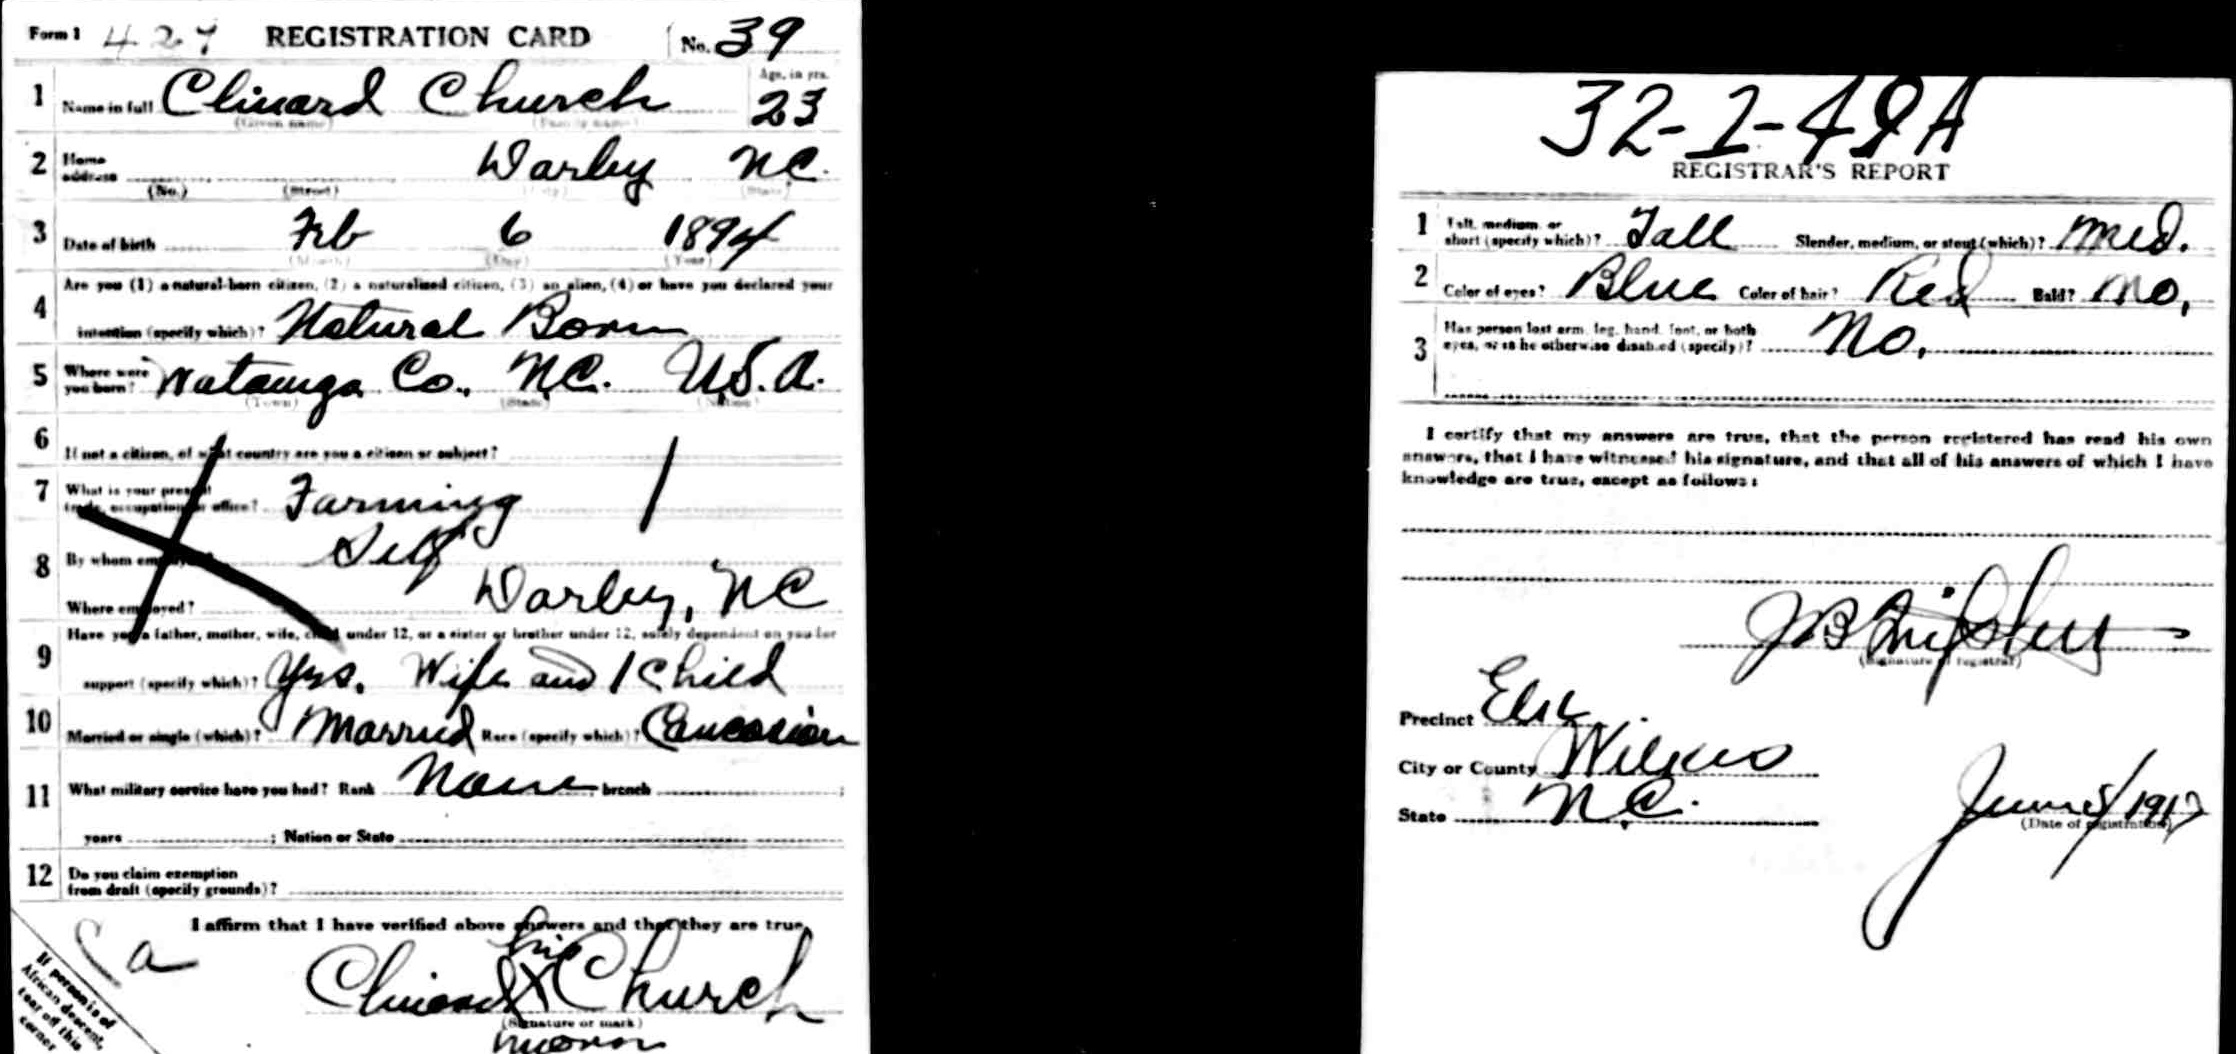 Form 1 427 REGISTRATION CARD No. 39
1 Name in full Clinard Church Age, in yrs. 23
(Given name) (Family name)
2 Home address Darby N.C.
(No.) (Street) (City) (State)
3 Date of birth Feb 6 1894
(Month) (Day) (Year)
4 Are you (1) a natural-born citizen, (2) a naturalized citizen, (3) an alien, (4) or have you declared your
intention (specify which)? Natural Born
5 Where were you born? Watauga Co., N.C. U.S.A.
(Town) (State) (Nation)
6 If not a citizen, of what country are you a citizen or subject?
7 What is your present trade, occupation or office? Farming
8 By whom employed? Self
Where employed? Darby, NC
9 Have you a father, mother, wife, child under 12, or a sister or brother under 12, solely dependent on you for
support (specify which)? Yes. Wife and 1 Child
10 Married or single (which)? Married Race (specify which)? Caucasian
11 What military service have you had? Rank None branch
years ; Nation or State
12 Do you claim exemption
from draft (specify grounds)?
I affirm that I have verified above answers and that they are true.
his
Clinard X Church
(Signature or mark)
If person is of
African descent,
tear off this
corner
32-1-49A
REGISTRAR'S REPORT
1 Tall, medium, or
short (specify which)? Tall Slender, medium, or stout (which)? Med.
2 Color of eyes? Blue Color of hair? Red Bald? No.
3 Has person lost arm, leg, hand, foot, or both
eyes, or is he otherwise disabled (specify)? No.
I certify that my answers are true, that the person registered has read his own
answers, that I have witnessed his signature, and that all of his answers of which I have
knowledge are true, except as follows:
(Signature of registrar)
Precinct Elk
City or County Wilkes
State N.C. June 5/1917
(Date of registration)